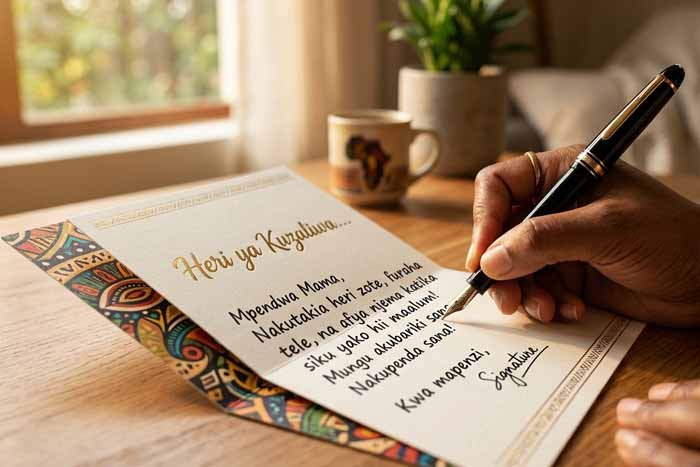 Heri ya Kuzaliwa...
Mpendwa Mama,
Nakutakia heri zote, furaha
tele, na afya njema katika
siku yako hii maalum!
Mungu akubariki sana
Nakupenda sana!
Kwa mapenzi,
Signature